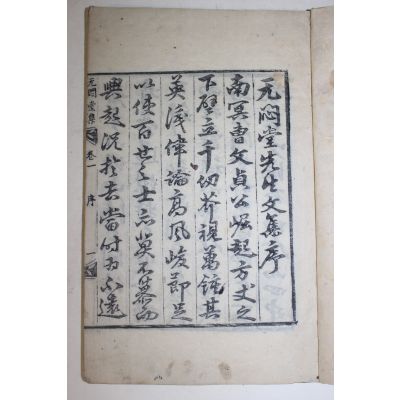 无悶堂先生文集序
南冥曺文貞公崛起方丈之
下壁立千仞芥視萬鍾其
英偉論高風峻節足
以使百世之士莫不慕而
興起況於去當時為不遠
无悶堂集 卷一 序 一